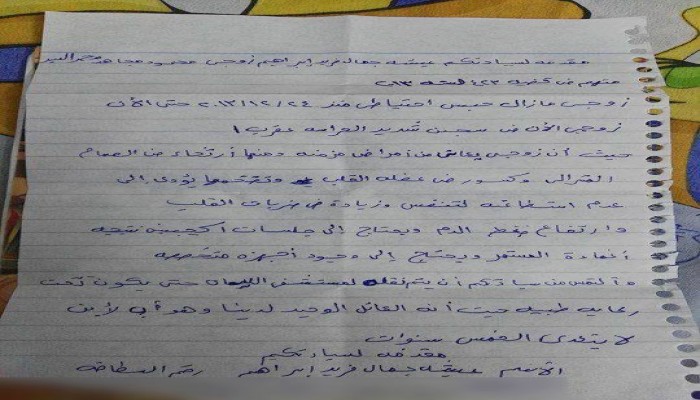 مقدمه لسيادتكم عيشه جمال فريد ابراهيم زوجى محمود مجاهد
متهم فى قضيه ٤٢٣ لسنه ١٣
زوجى مازال حبس احتياطى منذ ٢٠١٣/١٢/٢٤ حتى الأن
زوجى الأن فى سجن شديد الحراسه عقرب ١
حيث أن زوجى يعانى من أمراض مزمنه ومنها أرتخاء فى الصمام
المترالى وكسور فى عضله القلب يؤدى إلى
عدم استطاعته لتنفس وزيادة فى ضربات القلب
وارتفاع ضغط الدم ويحتاج إلى جلسات اكجسين نتيجه
المستمر ويحتاج إلى وجود أجهزه متخصصه
وألتمس من سيادتكم أن يتم نقله لمستشفى حتى يكون تحت
رعايه طبيه حيث أنه العائل الوحيد لدينا وهو أب لأبن
لا يتعدى الخمس سنوات
مقدمه لسيادتكم
الأسم عيشه جمال فريد ابراهيم رقم البطاقة